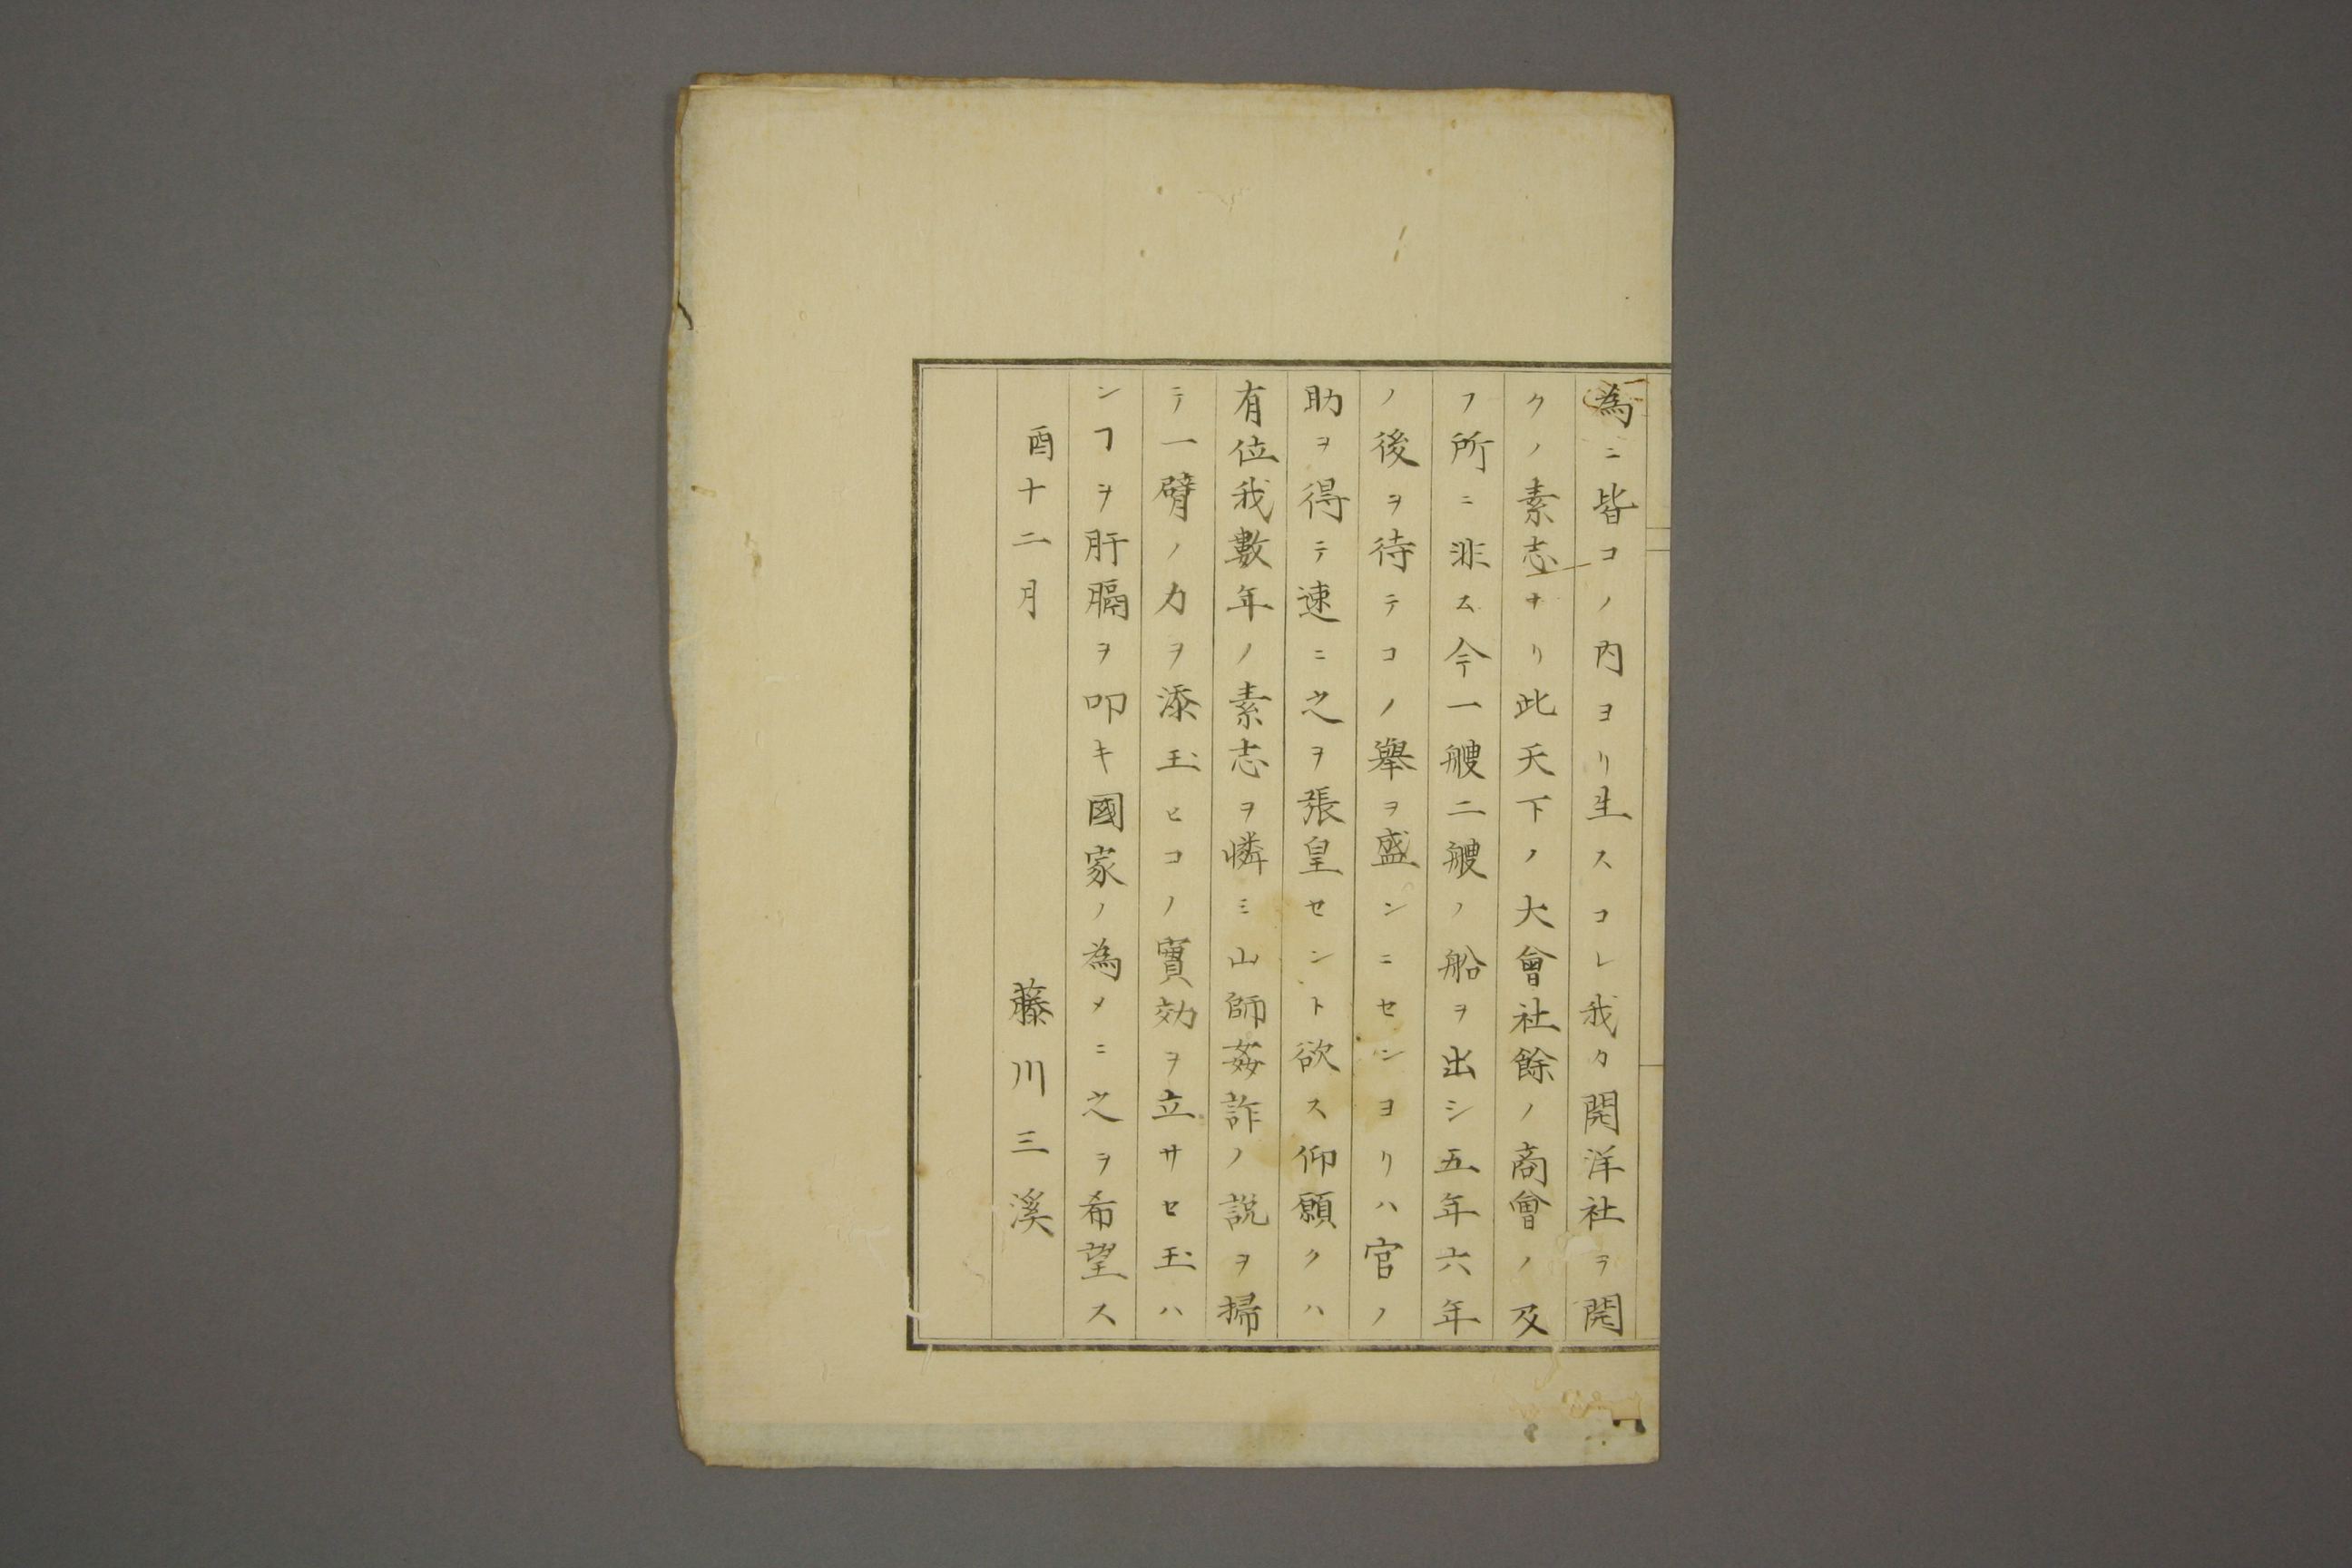 為ニ皆コノ内ヨリ生スコレ我カ開洋社ヲ開
クノ素志ナリ此天下ノ大會社餘ノ商會ノ及
フ所ニ非ス今一艘二艘ノ船ヲ出シ五年六年
ノ後ヲ待テコノ舉ヲ盛ンニセンヨリハ官ノ
助ヲ得テ速ニ之ヲ張皇セント欲ス仰願クハ
有位我數年ノ素志ヲ憐ミ山師姦詐ノ説ヲ掃
テ一臂ノ力ヲ添玉ヒコノ實効ヲ立サセ玉ハ
ンヿヲ肝膈ヲ叩キ國家ノ為メニ之ヲ希望ス
酉十二月
藤川三溪